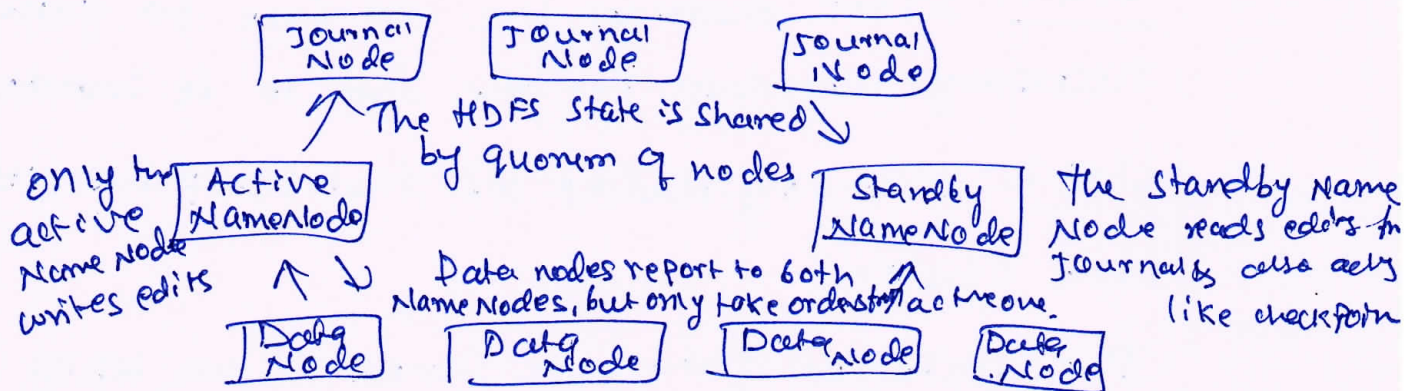 Journal Node
Journal Node
Journal Node
The HDFS State is shared
by quorum of nodes
only the
active
Name Node
writes edits
Active
NameNode
Standby
NameNode
the standby Name
Node reads edits
Journals also acts
like checkpoin
Data nodes report to both
NameNodes, but only take orders active one.
Data Node
Data Node
Data Node
Data Node